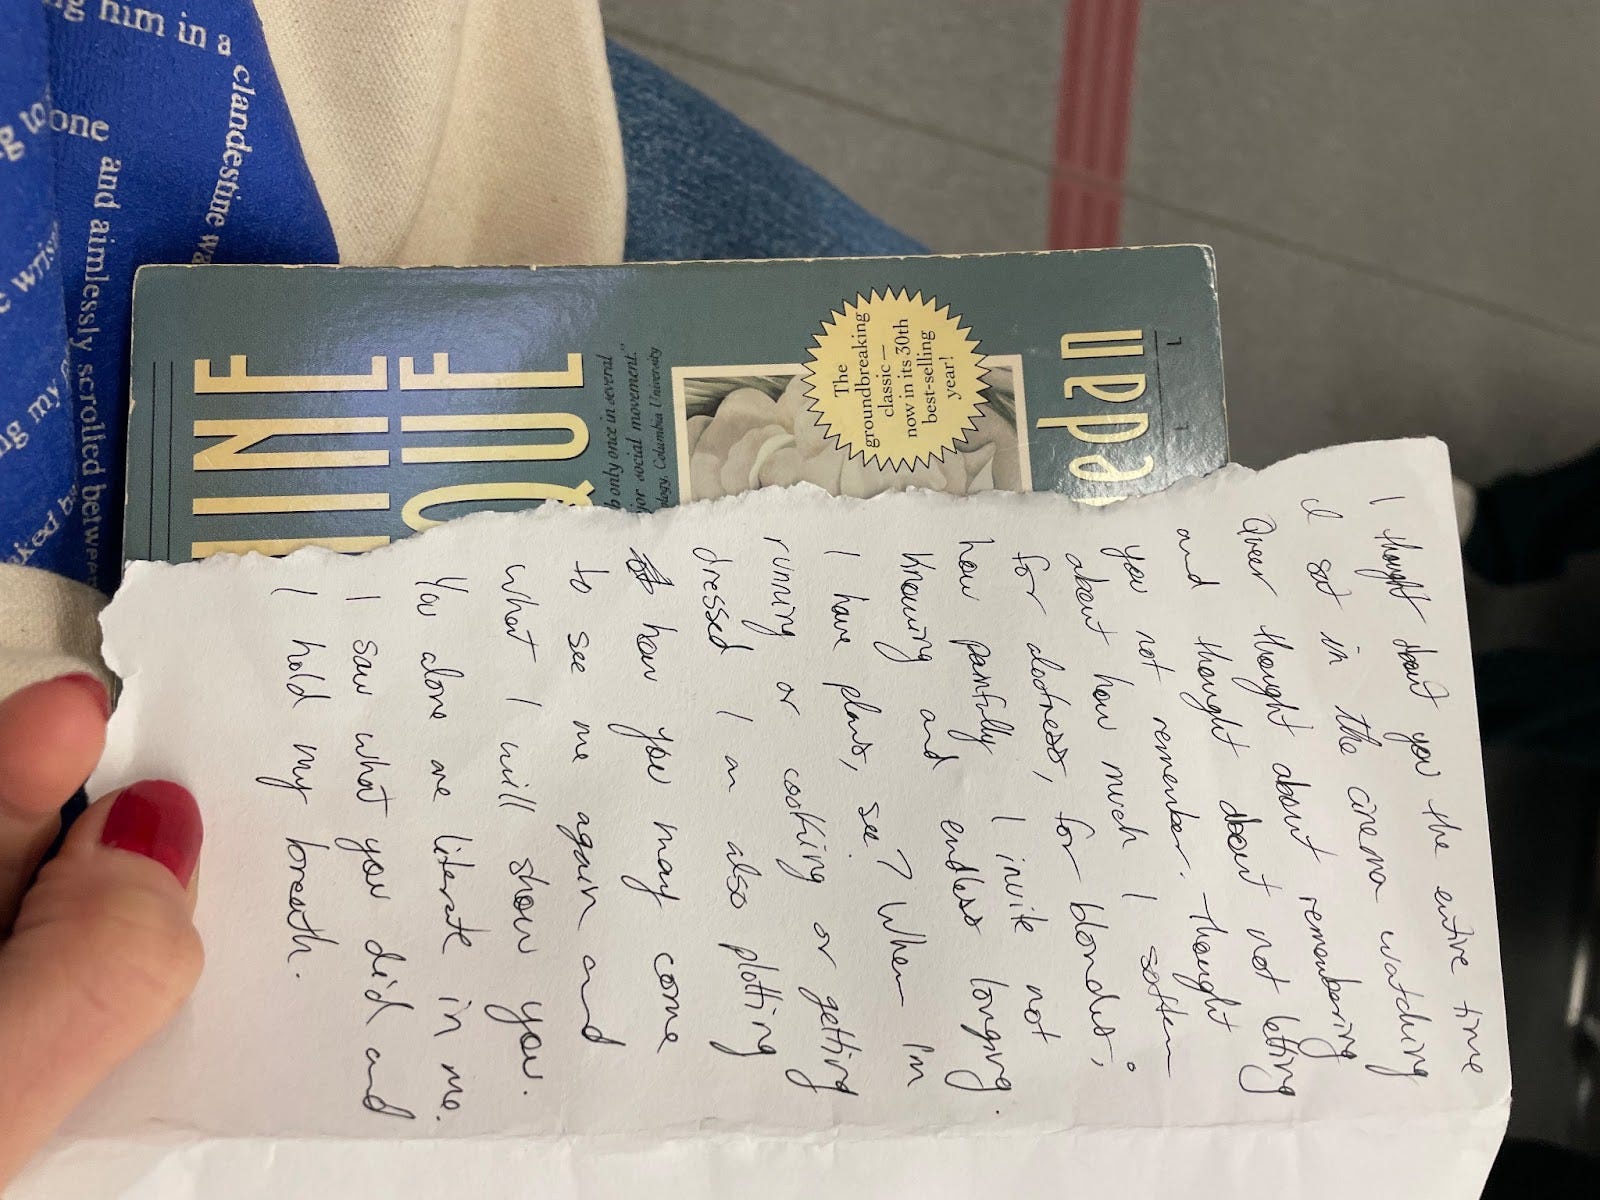 I thought about you the entire time
I sat in the cinema watching
Queer thought about remembering
and thought about not letting
you not remember. thought
about how much I soften
for aloofness, for blondes;
how painfully I invite not
knowing and endless longing.
I have plans, see? When I'm
running or cooking or getting
dressed I am also plotting
how you may come
to see me again and
what I will show you.
You alone are literate in me.
I saw what you did and
I hold my breath.
INE
QUE
only once in several
jor social movement."
ology, Columbia University
The
groundbreaking
classic —
now in its 30th
best-selling
year!
edan
ng him in a
clandestine wa
g to
one
and aimlessly scrolled betwee
e wris
ng my
oked b